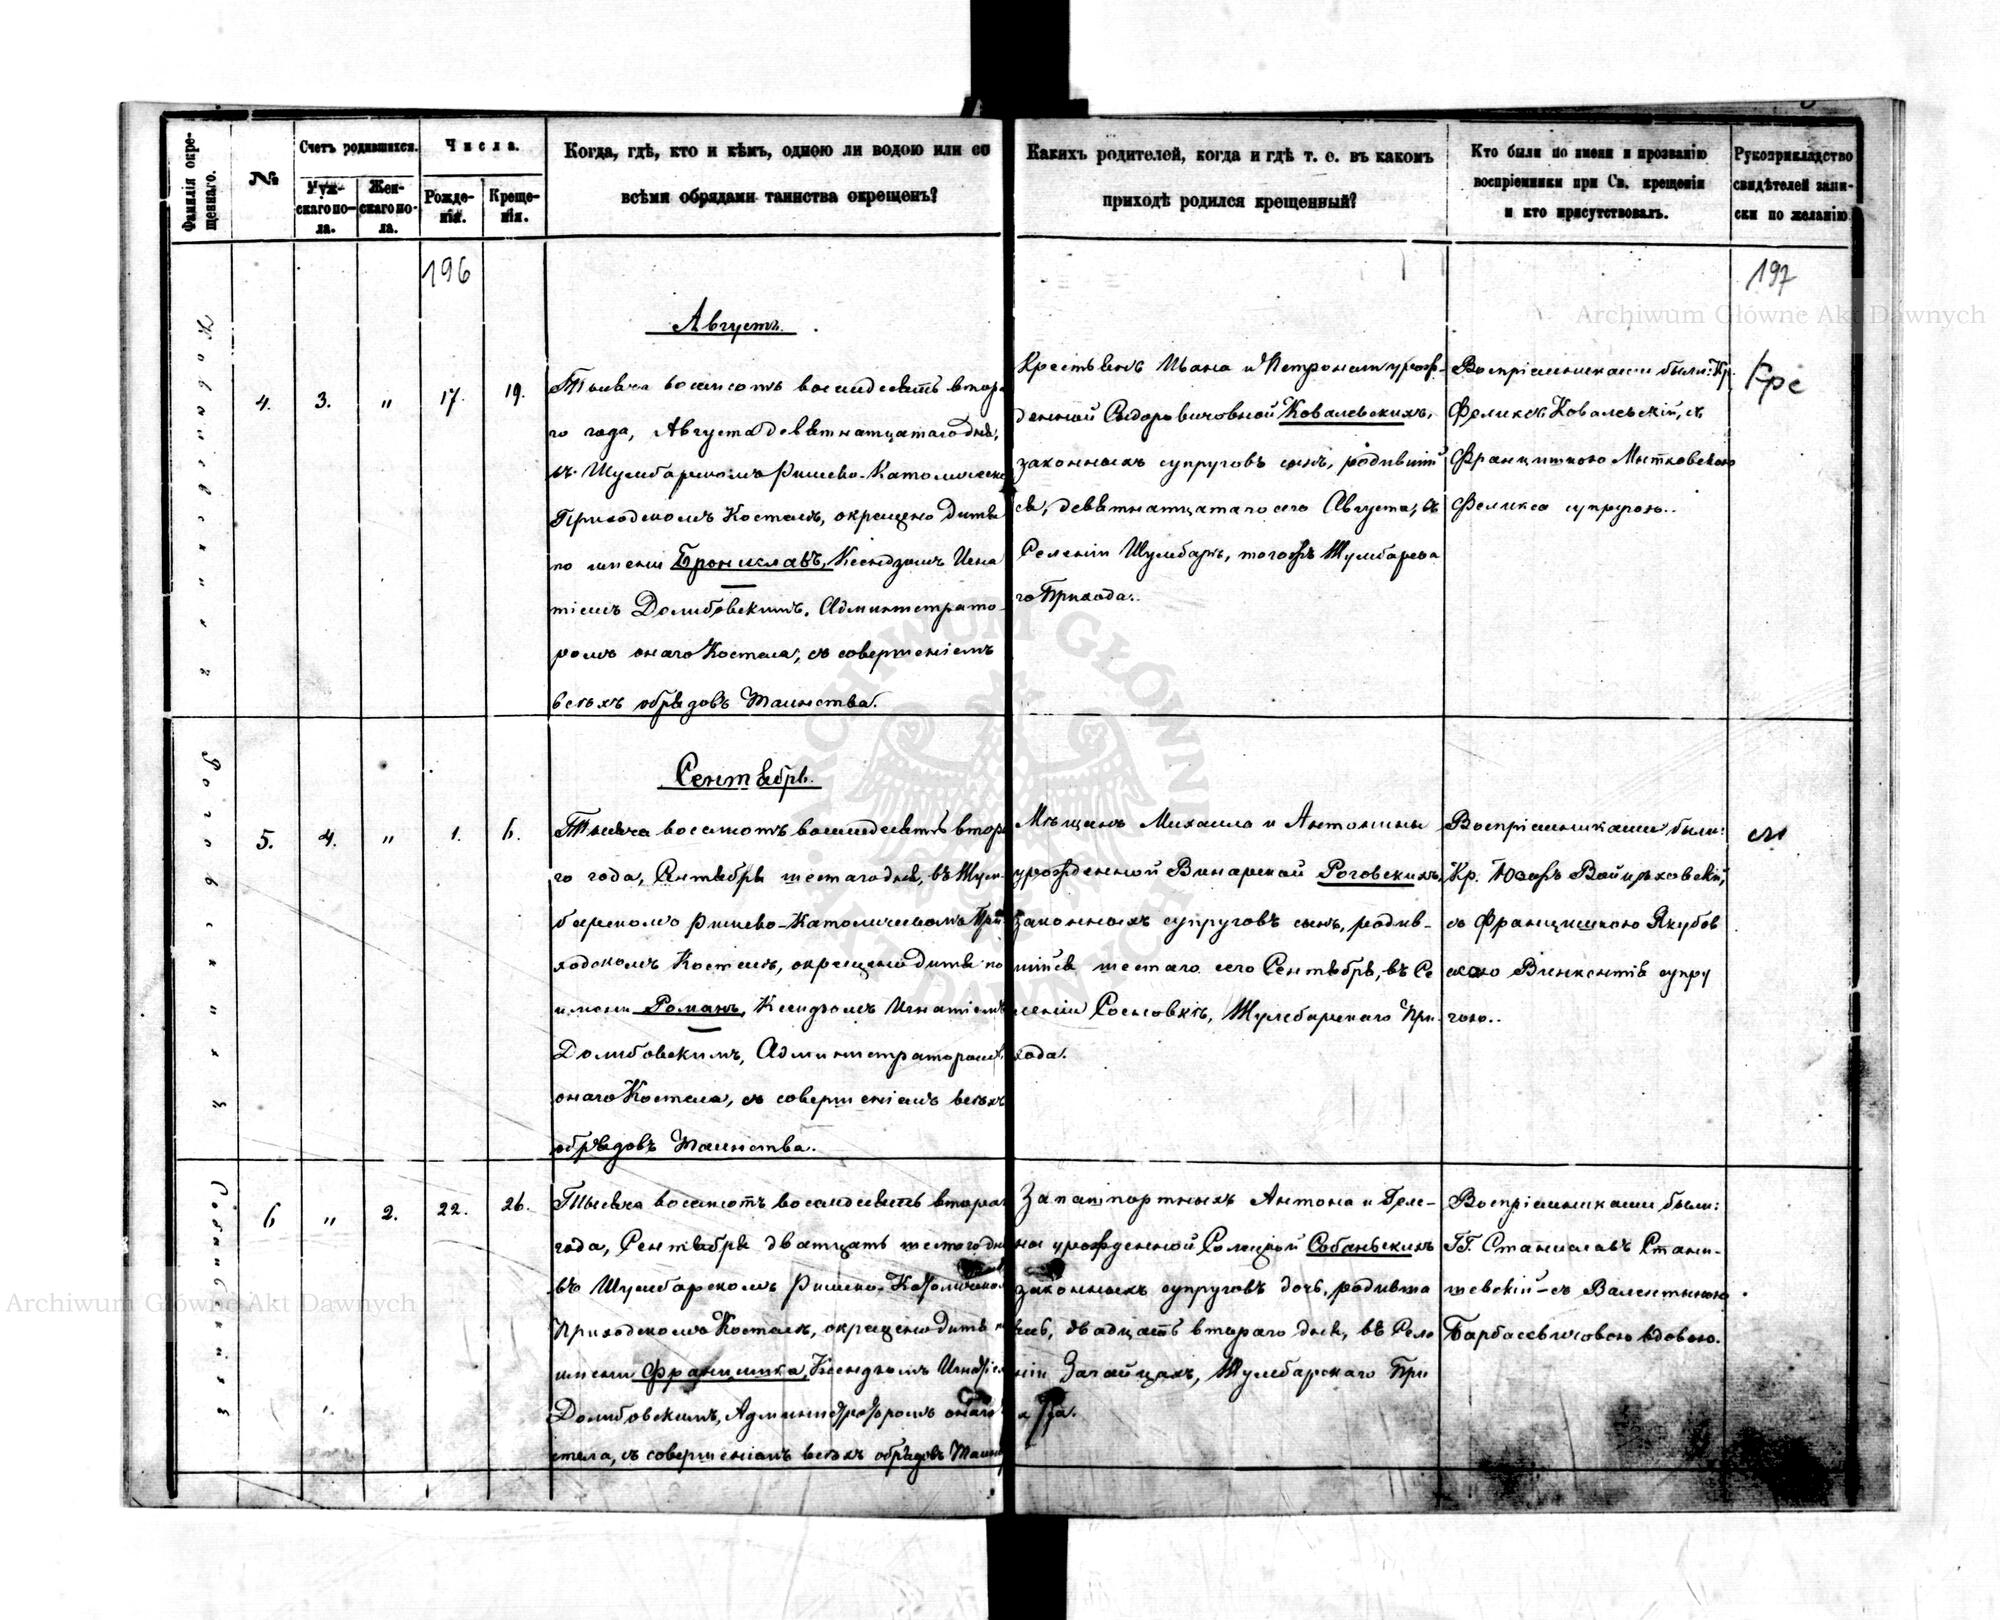 Фамилія окре-
щеннаго.
№
Счетъ родившихся.
Муж-
скаго по-
ла.
Жен-
скаго по-
ла.
Числа.
Рожде-
нія.
Креще-
нія.
Когда, гдѣ, кто и кѣмъ, одною ли водою или со
всѣми обрядами таинства окрещенъ?
Какихъ родителей, когда и гдѣ т. е. въ какомъ
приходѣ родился крещенный?
Кто были по имени и прозванію
воспріемники при Св. крещеніи
и кто присутствовалъ.
Рукоприкладство
свидѣтелей запи-
ски по желанію.
196
197
Archiwum Główne Akt Dawnych
Августъ.
4.
3.
"
17.
19.
Тысяча восемсотъ восемдесятъ второ
го года, Августа девятнатцатаго дня,
въ Шумбарскомъ Римско-Католическо
Приходскомъ Костелѣ, окрещено дитя
по имени Брониславъ, Ксендзомъ Игна
тіемъ Долибовскимъ, Администрато-
ромъ онаго Костела, съ совершеніемъ
всѣхъ обрядовъ Таинства.
Крестьянъ Ивана и Петронели урож-
денной Сидоровичовной Ковалевскихъ,
законныхъ супруговъ сынъ, родившій
ся, девятнатцатаго сего Августа, въ
Селеніи Шумбаръ, тогожъ Шумбарска
го Прихода.
Воспріемниками были: Кр.
Феликсъ Ковалевскій, съ
Францишкою Мытковскою
Феликса супругою.
Кре
Сентябрь.
5.
4.
"
1.
6.
Тысяча восемсотъ восемдесятъ второ
го года, Сентября шестаго дня, въ Шум-
барскомъ Римско-Католическомъ При-
ходскомъ Костелѣ, окрещено дитя по
имени Романъ, Ксендзомъ Игнатіемъ
Долибовскимъ, Администраторомъ
онаго Костела, съ совершеніемъ всѣхъ
обрядовъ Таинства.
Мѣщанъ Михаила и Антонины
урожденной Винарской Роговскихъ,
законныхъ супруговъ сынъ, родив-
шійся шестаго сего Сентября, въ Се
леніи Сосновкѣ, Шумбарскаго При-
хода.
Воспріемниками были:
Кр. Юзефъ Войцѣховскій,
съ Францишкою Якубов
скою Викентія супру
гою.
6
"
2.
22.
26.
Тысяча восемсотъ восемдесятъ втораго
года, Сентября дватцать шестого дня
въ Шумбарскомъ Римско-Католическом
Приходскомъ Костелѣ, окрещено дитя по
имени Францишка, Ксендзомъ Игнатіем
Долибовскимъ, Администраторомъ онаго
стела, съ совершеніемъ всѣхъ обрядовъ Таин
Запашпортныхъ Антона и Геле-
ны урожденной Собанскихъ
законныхъ супруговъ дочь, родивша
яся, двадцать втораго дня, въ Селе
ніи Загайцахъ, Шумбарскаго При
хода.
Воспріемниками были:
ГГ. Станиславъ Стани-
шевскій съ Валентиною
Барбасевичовою вдовою.
Archiwum Główne Akt Dawnych
ARCHIWUM GŁÓWNE AKT DAWNYCH